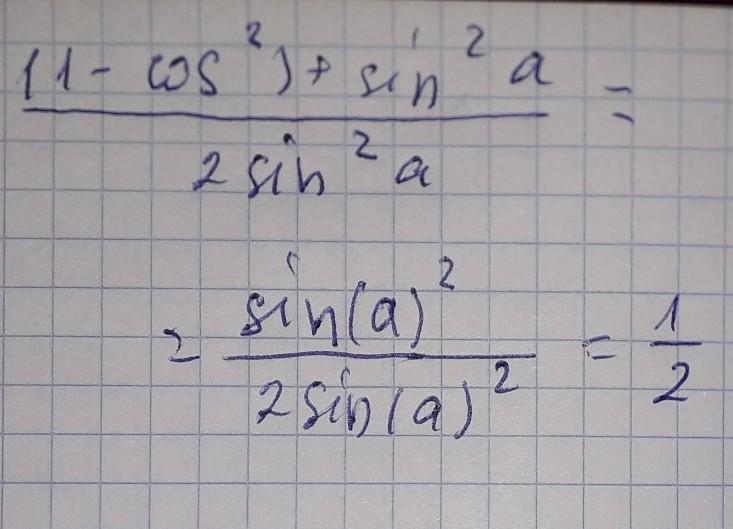 (1 - cos²) + sin² a =
2 sin² a
= sin(a)² = 1
2 sin(a)² 2